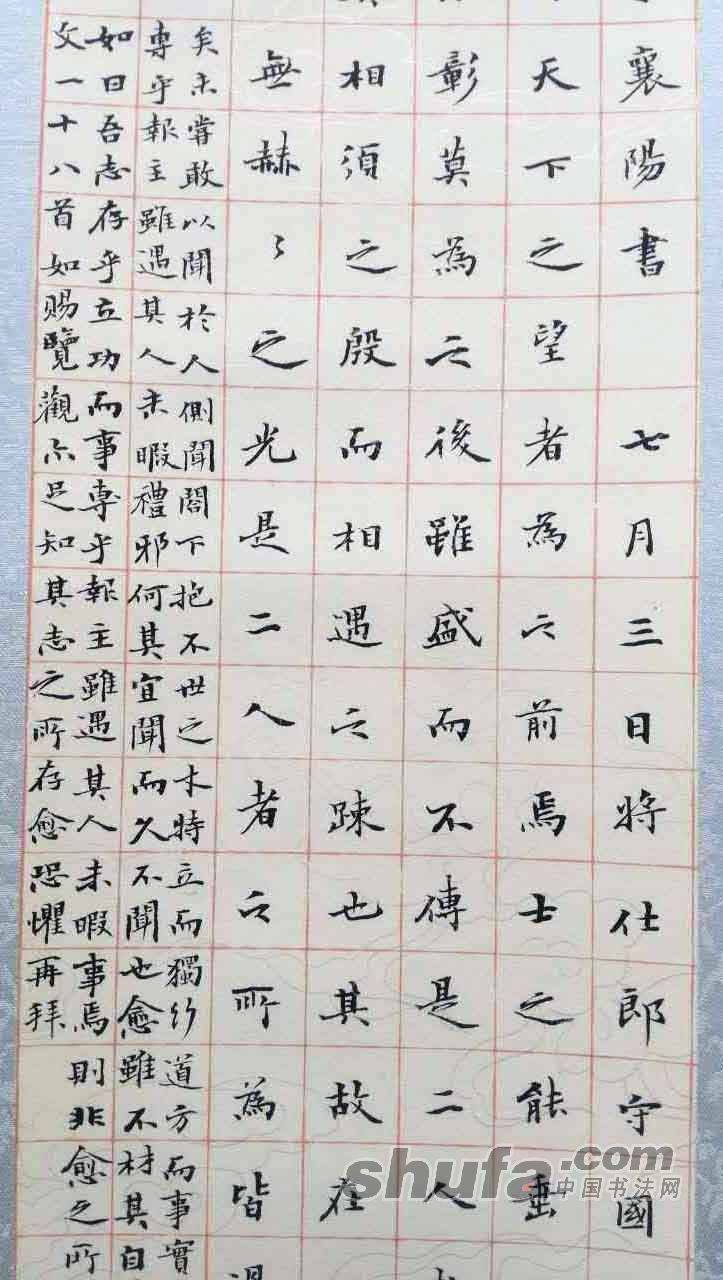 襄陽書 七月三日將仕郎守國
天下之望者為之前焉士之能垂
彰莫為之後雖盛而不傳是二人
相須之殷而相遇之疎也其故在
無赫々之光是二人者之所為皆
矣未嘗敢以聞於人側聞閤下抱不世之才特立而獨行道方而事實
專乎報主雖遇其人未暇禮邪何其宜聞而久不聞也愈雖不材其自
如曰吾志存乎立功而事專乎報主雖遇其人未暇事焉則非愈之所
文一十八首如賜覽觀亦足知其志之所存愈恐懼再拜
shufa.com
中国书法网